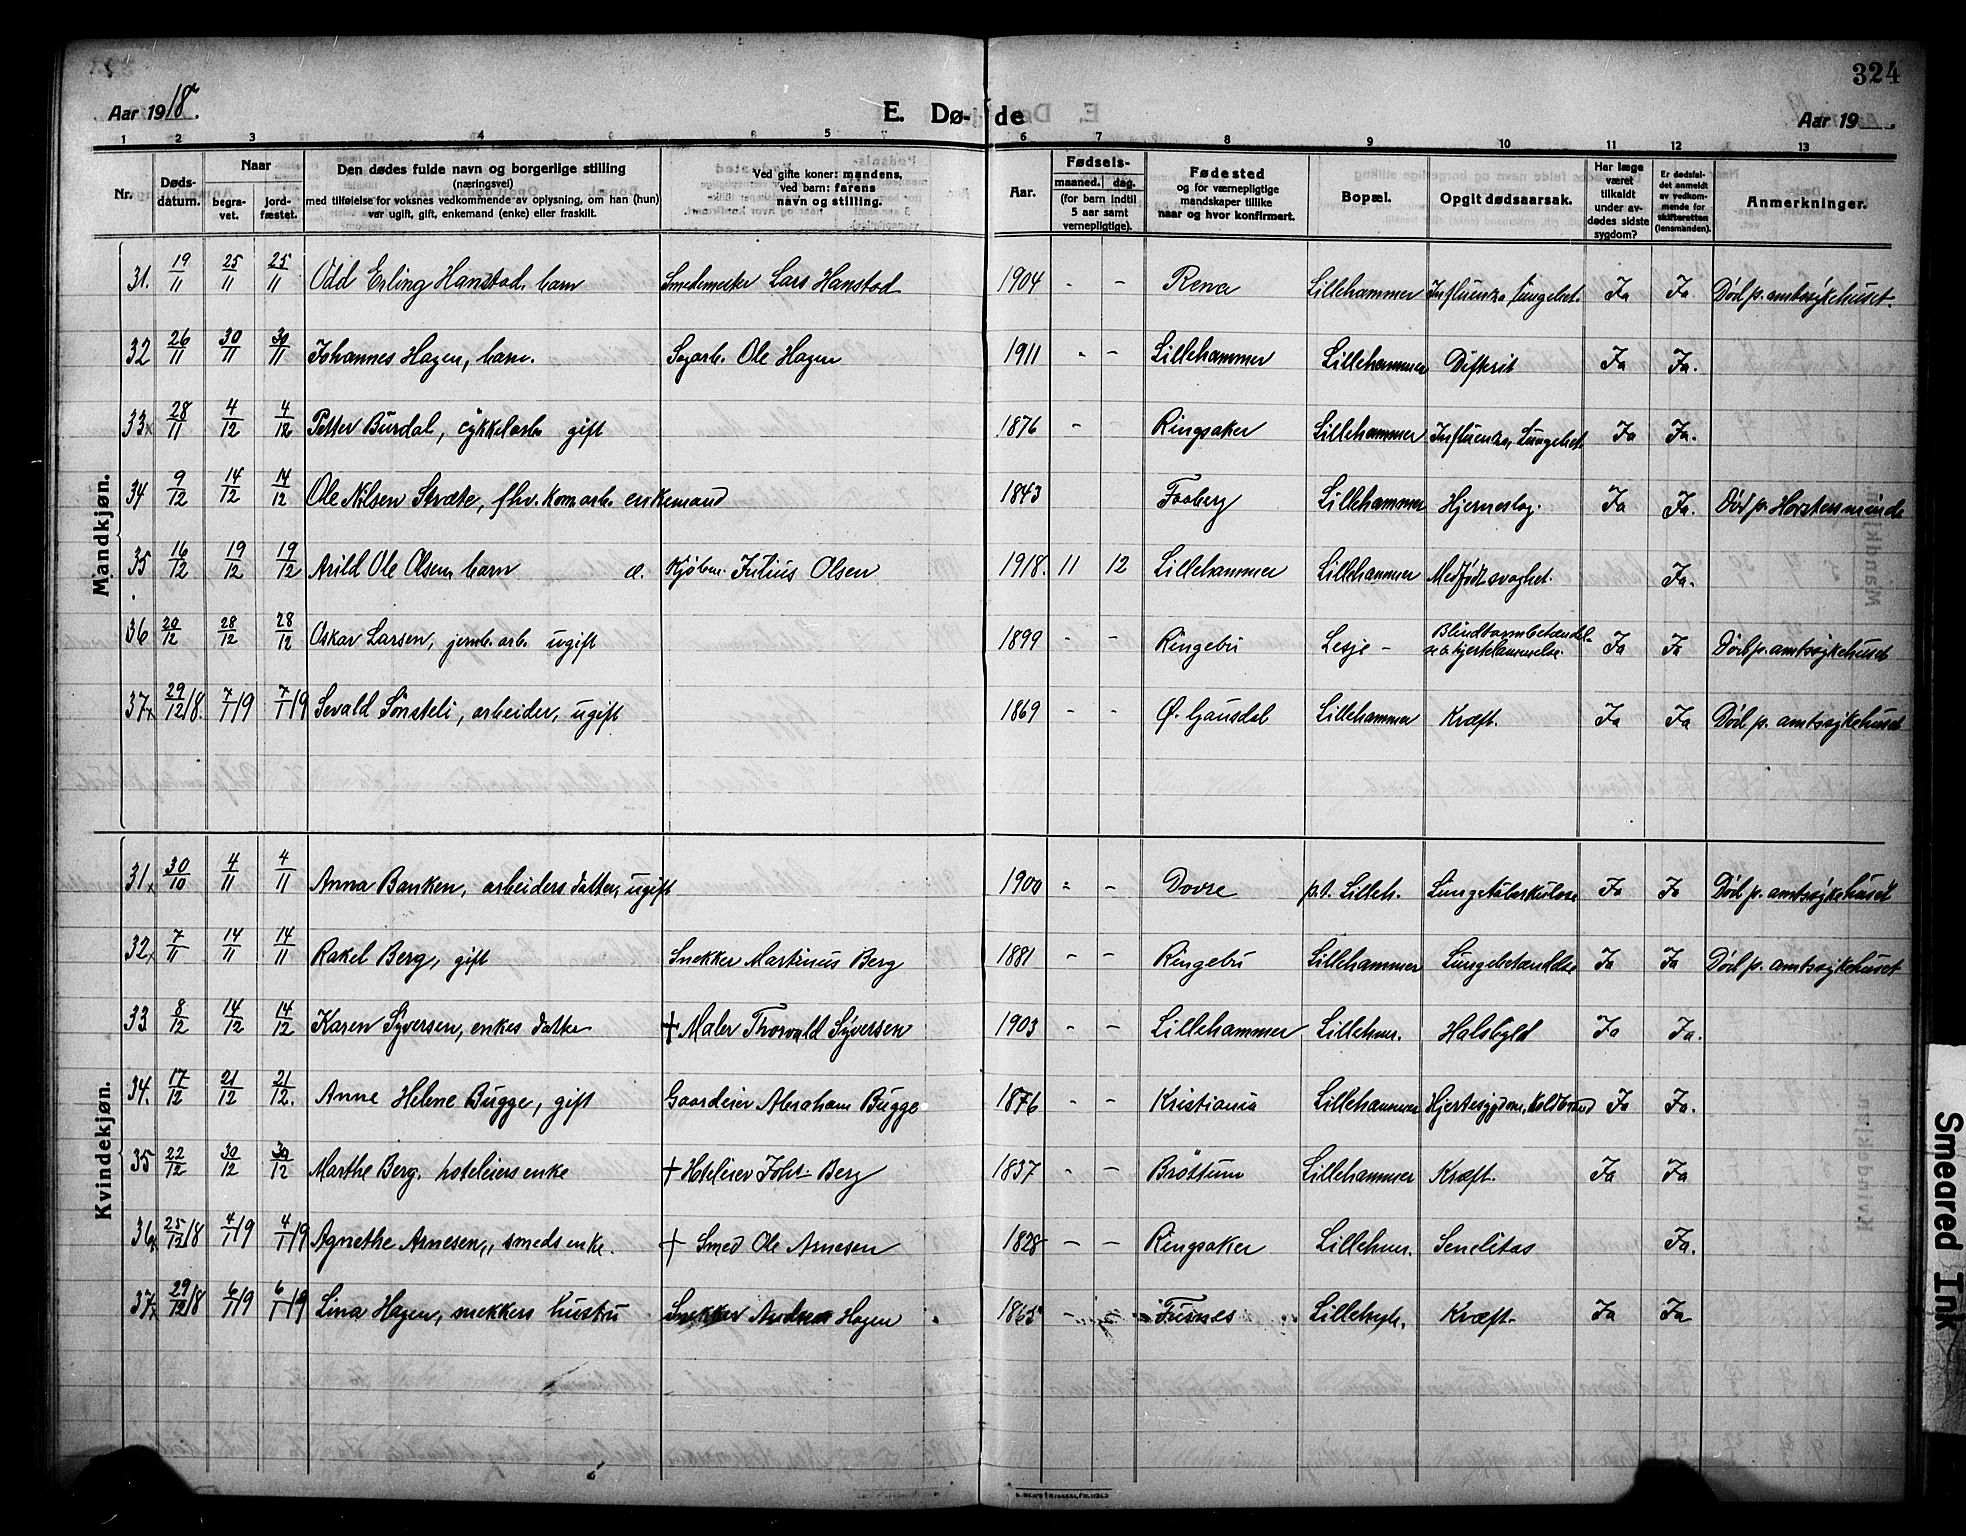 324
Aar 1918.
E. Dø-de
Aar 19
1 2 3 4 5 6 7 8 9 10 11 12 13
Nr.
Døds-datum.
Naar
begra-vet.
jord-fæstet.
Den dødes fulde navn og borgerlige stilling
(næringsvei)
med tilføielse for voksnes vedkommende av oplysning, om han (hun)
var ugift, gift, enkemand (enke) eller fraskilt.
Ved gifte koner: mandens,
ved barn: farens
navn og stilling.
Aar.
Fødsels-
maaned. dag.
(for barn indtil
5 aar samt
vernepligtige).
Fødested
og for værnepligtige
mandskaper tillike
naar og hvor konfirmert.
Bopæl.
Opgit dødsaarsak.
Har læge
været
tilkaldt
under av-
dødes sidste
sygdom?
Er dødsfal-
det anmeldt
av vedkom-
mende for
skifteretten
(lensmanden).
Anmerkninger.
Mandkjøn.
31. 19/11 25/11 25/11 Odd Erling Hanstad, barn Smedemester Lars Hanstad 1904 - - Rena Lillehammer Influenza, lungebet. Ja Ja. Død p. amtssykehuset.
32 26/11 30/11 30/11 Johannes Hagen, barn. Sagarb. Ole Hagen 1911 - - Lillehammer Lillehammer Difterit Ja Ja.
33x 28/11 4/12 4/12 Petter Burdal, cykkelarb. gift 1876 - Ringsaker Lillehammer Influenza, Lungebet. Ja Ja.
34 9/12 14/12 14/12 Ole Nilsen Stræte, fhv. kom.arb. enkemand 1843 Faaberg Lillehammer Hjerneslag. Ja Ja. Død p. Horstersminde
35 16/12 19/12 19/12 Arild Ole Olsen, barn æ. Kjøbm. Julius Olsen 1918. 11 12 Lillehammer Lillehammer Medfødt svaghet. Ja.
36 20/12 28/12 28/12 Oskar Larsen, jernb.arb. ugift 1899 - - Ringebu Lesje - Blindtarmbetændel-
se & hjertelammelse. Ja Ja Død p. amtssykehuset
37x 29/12 18. 7/1 19 7/1 19 Sevald Sønsteli, arbeider, ugift 1869 - - Ø. Gausdal Lillehammer Kræft. Ja Ja Død p. amtssykehuset
Kvindekjøn.
31x 30/10 4/11 4/11 Anna Banken, arbeiders datter, ugift 1900 - - Dovre p.t. Lilleh. Lungetuberkulose Ja Ja Død p. amtssykehuset
32x 7/11 14/11 14/11 Rakel Berg, gift Snekker Martinus Berg 1881 - - Ringebu Lillehammer Lungebetændelse Ja Ja Død p. amtssykehuset
33 8/12 14/12 14/12 Karen Syversen, enkes datter † Maler Thorvald Syversen 1903 - - Lillehammer Lillehmr. Halsbyld Ja Ja.
34. 17/12 21/12 21/12. Anne Helene Bugge, gift Gaardeier Abraham Bugge 1876 - - Kristiania Lillehammer Hjertesygdom, Koldbrand Ja Ja.
35 22/12 30/12 30/12 Marthe Berg. hoteleiers enke † Hoteleier Johs Berg 1837 - - Brøttum Lillehammer Kræft. Ja Ja
36x 25/12 18 4/1 19 4/1 19 Agnethe Arnesen, smeds enke. † Smed Ole Arnesen 1828 - - Ringsaker Lillehmr. Senilitas Ja.
37x 29/12 18 6/1 19 6/1 19 Lina Hagen, snekkers hustru Snekker Andreas Hagen 1865 - Furnes Lilleh. Kræft. Ja Ja
Smeared Ink